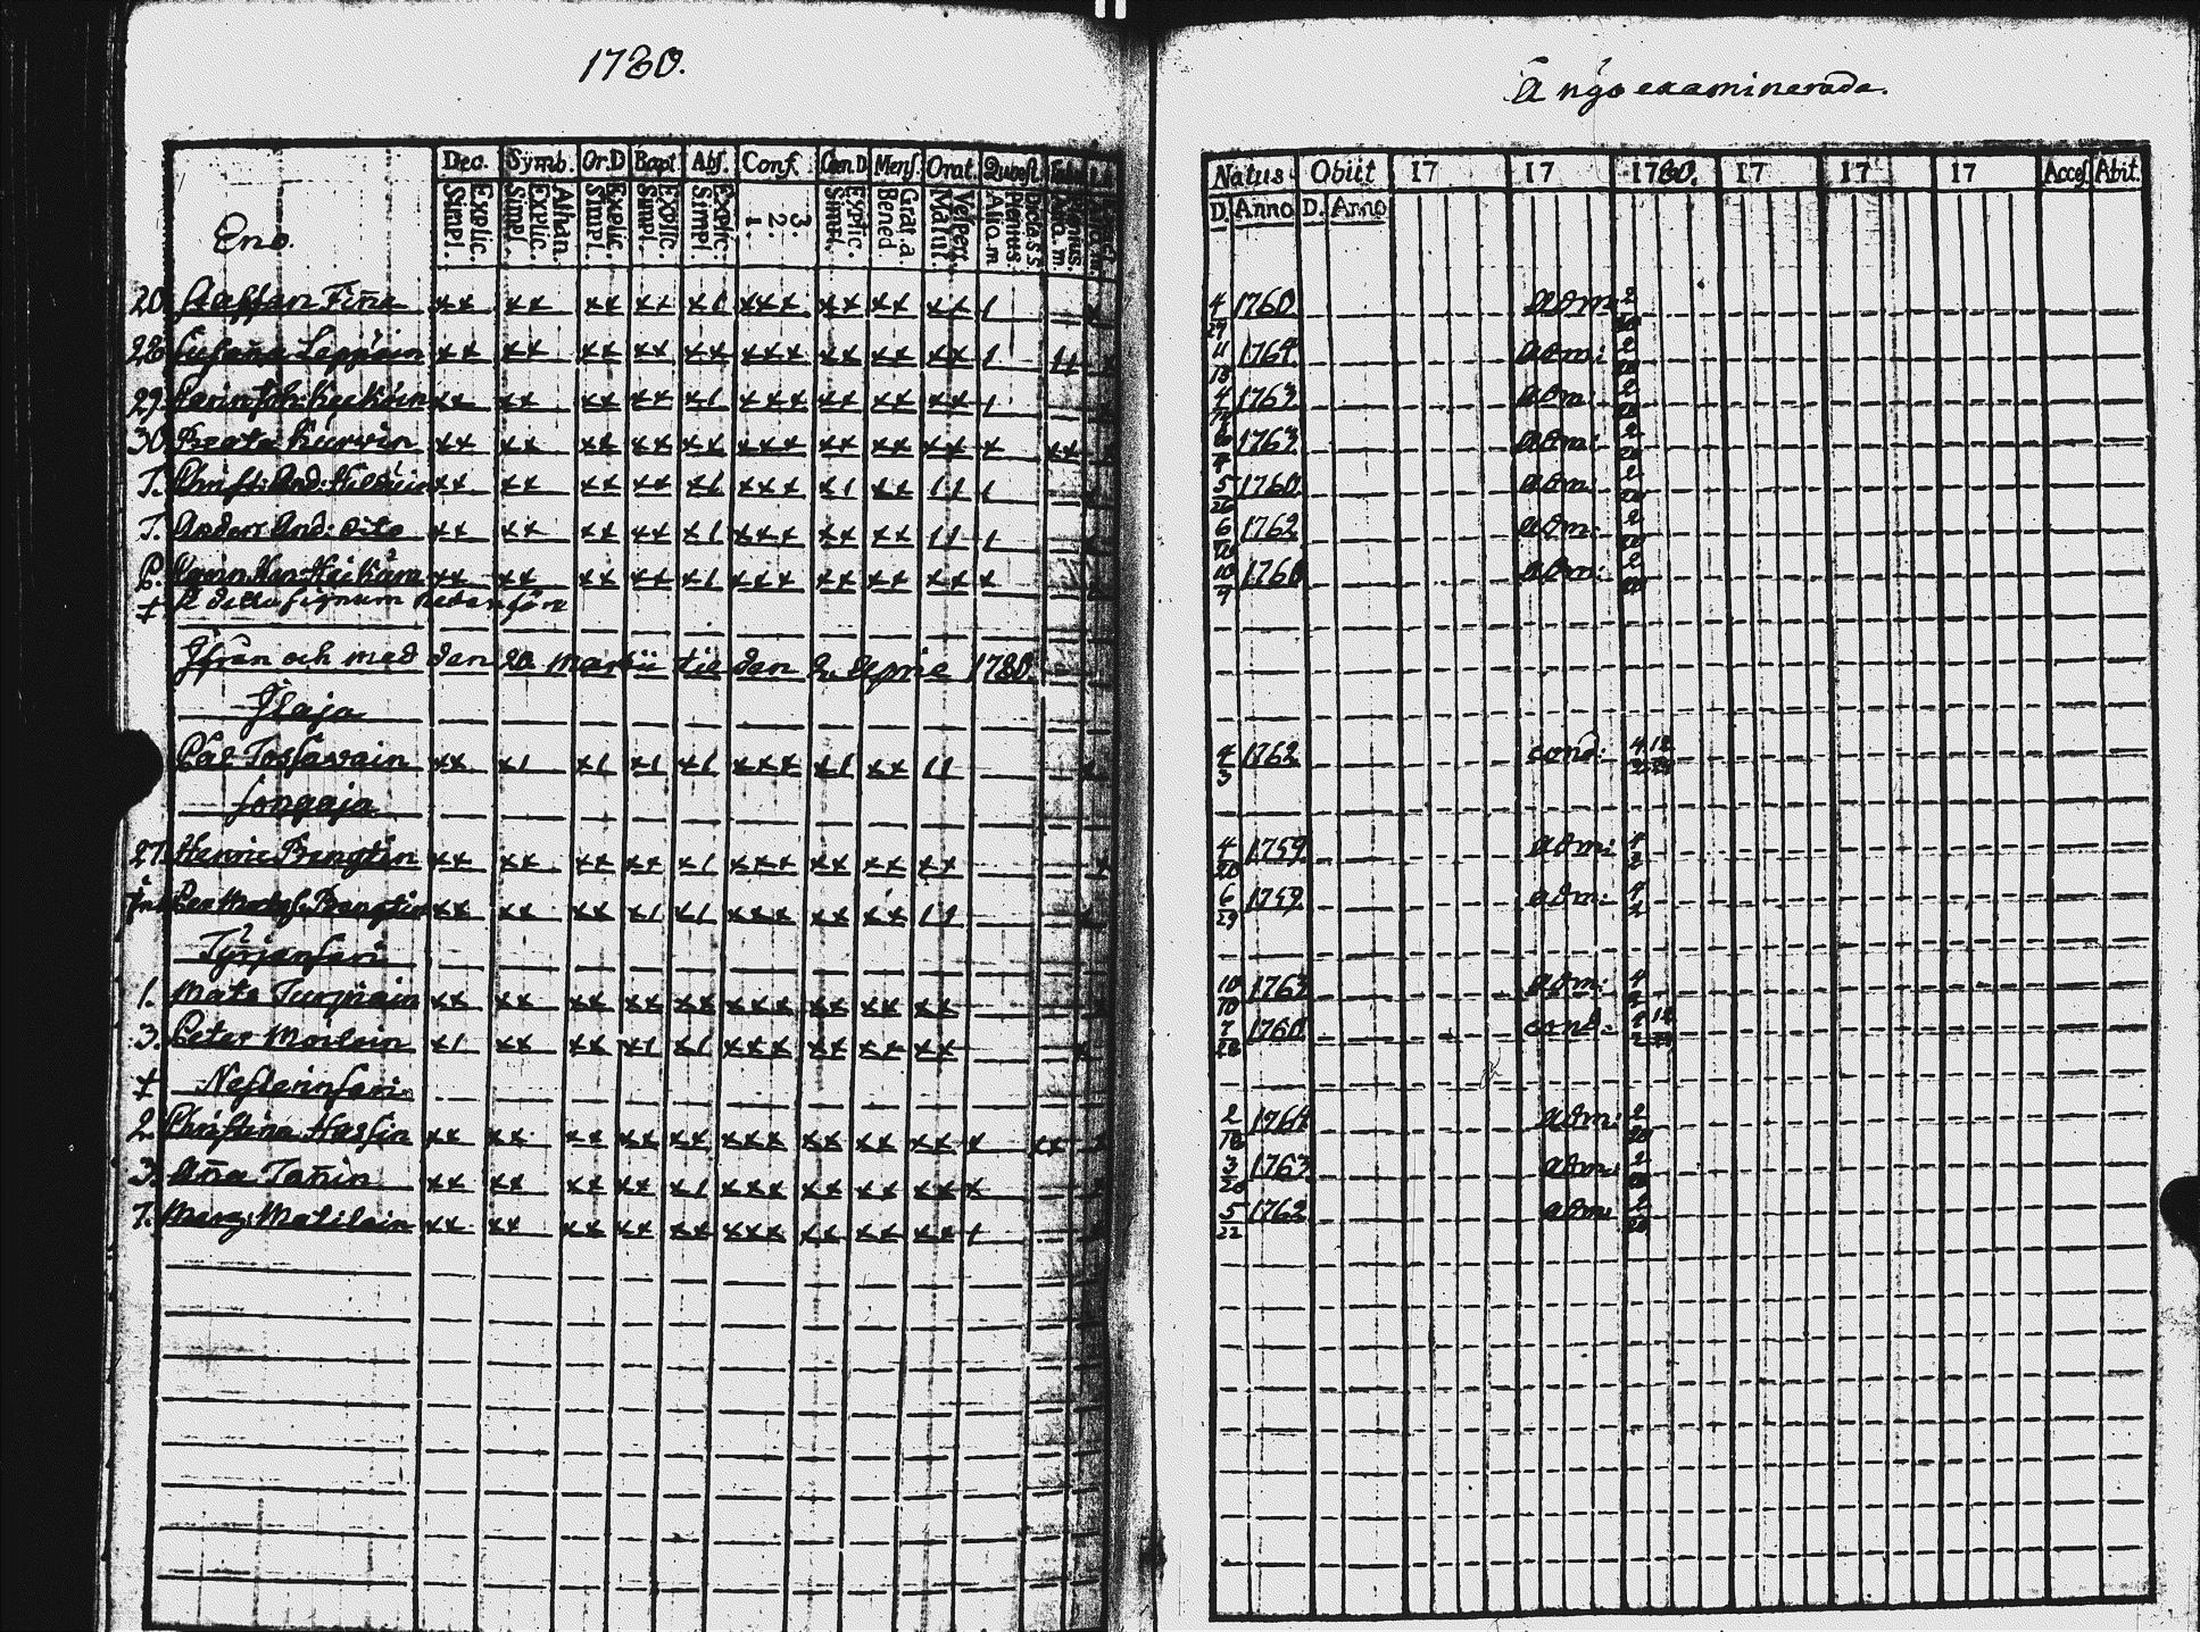 1780.
Dec. Symb. Or.D Bapt Abs. Conf. Cœn.D Mens. Orat. Quæst.
Explic. Simpl. Athan. Explic. Simpl. Explic. Simpl. Explic. Simpl. Explic. Simpl. 3. 2. 1. Explic. Simpl. Grat. a Bened. Vesper. Matut. Dicta S.S. Plenius. Aliq.m
Eno.
20. Staffan Tiña xx xx xx xx x1 xxx xx xx xx 1
28. Susaña Leppäin xx xx xx xx xx xxx xx xx xx 1 11
29. Karin Joh: xx xx xx xx x1 xxx xx xx xx 1
30. Beata Kurvin xx xx xx xx xx xxx xx xx xx x xx
T. Christ: And: xx xx xx xx x1 xxx x1 xx 11 1
T. Anders And: dito xx xx xx xx x1 xxx xx xx 11 1
P. xx xx xx xx x1 xxx xx xx xx x
‡ detta signum nedanföre
Ifrån och med den 20 martii til den 2. April 1780.
Ilaja
Pål Tossavain xx x1 x1 x1 x1 xxx x1 xx 11
Songaja
27. Henric Bengtin xx xx xx xx x1 xxx xx xx xx
Bengtin xx xx xx x1 x1 xxx xx xx 11
Tyrjänsari
1. Mats Turpiain xx xx xx xx xx xxx xx xx xx
3. Peter Moilain x1 xx xx x1 x1 xxx xx xx xx
‡ Nesterinsari
2. Christina Hassin xx xx xx xx xx xxx xx xx xx x xx
3. Aña Tañin xx xx xx xx x1 xxx xx xx xx x
7. Marg: Matilain xx xx xx xx xx xxx xx xx xx 1
examinerade.
Natus Obiit 17 17 1780. 17 17 17 Acces Abit.
D. Anno D. Anno
4/29 1760 adm: 2/20
11/13 1764 adm: 2/20
1763 adm: 2/20
1763 adm: 2/20
5/26 1760 adm: 2/20
1762 adm: 2/20
10/7 1760 adm: 2/20
4/3 1762 cond:
4/20 1759 adm: 4/2
6/29 1759 adm: 4/2
10/10 1763 adm: 4/2
7/28 1760 cond:
2/18 1764 adm: 2/20
3/20 1763 adm: 2/20
5/22 1762 adm: 2/20